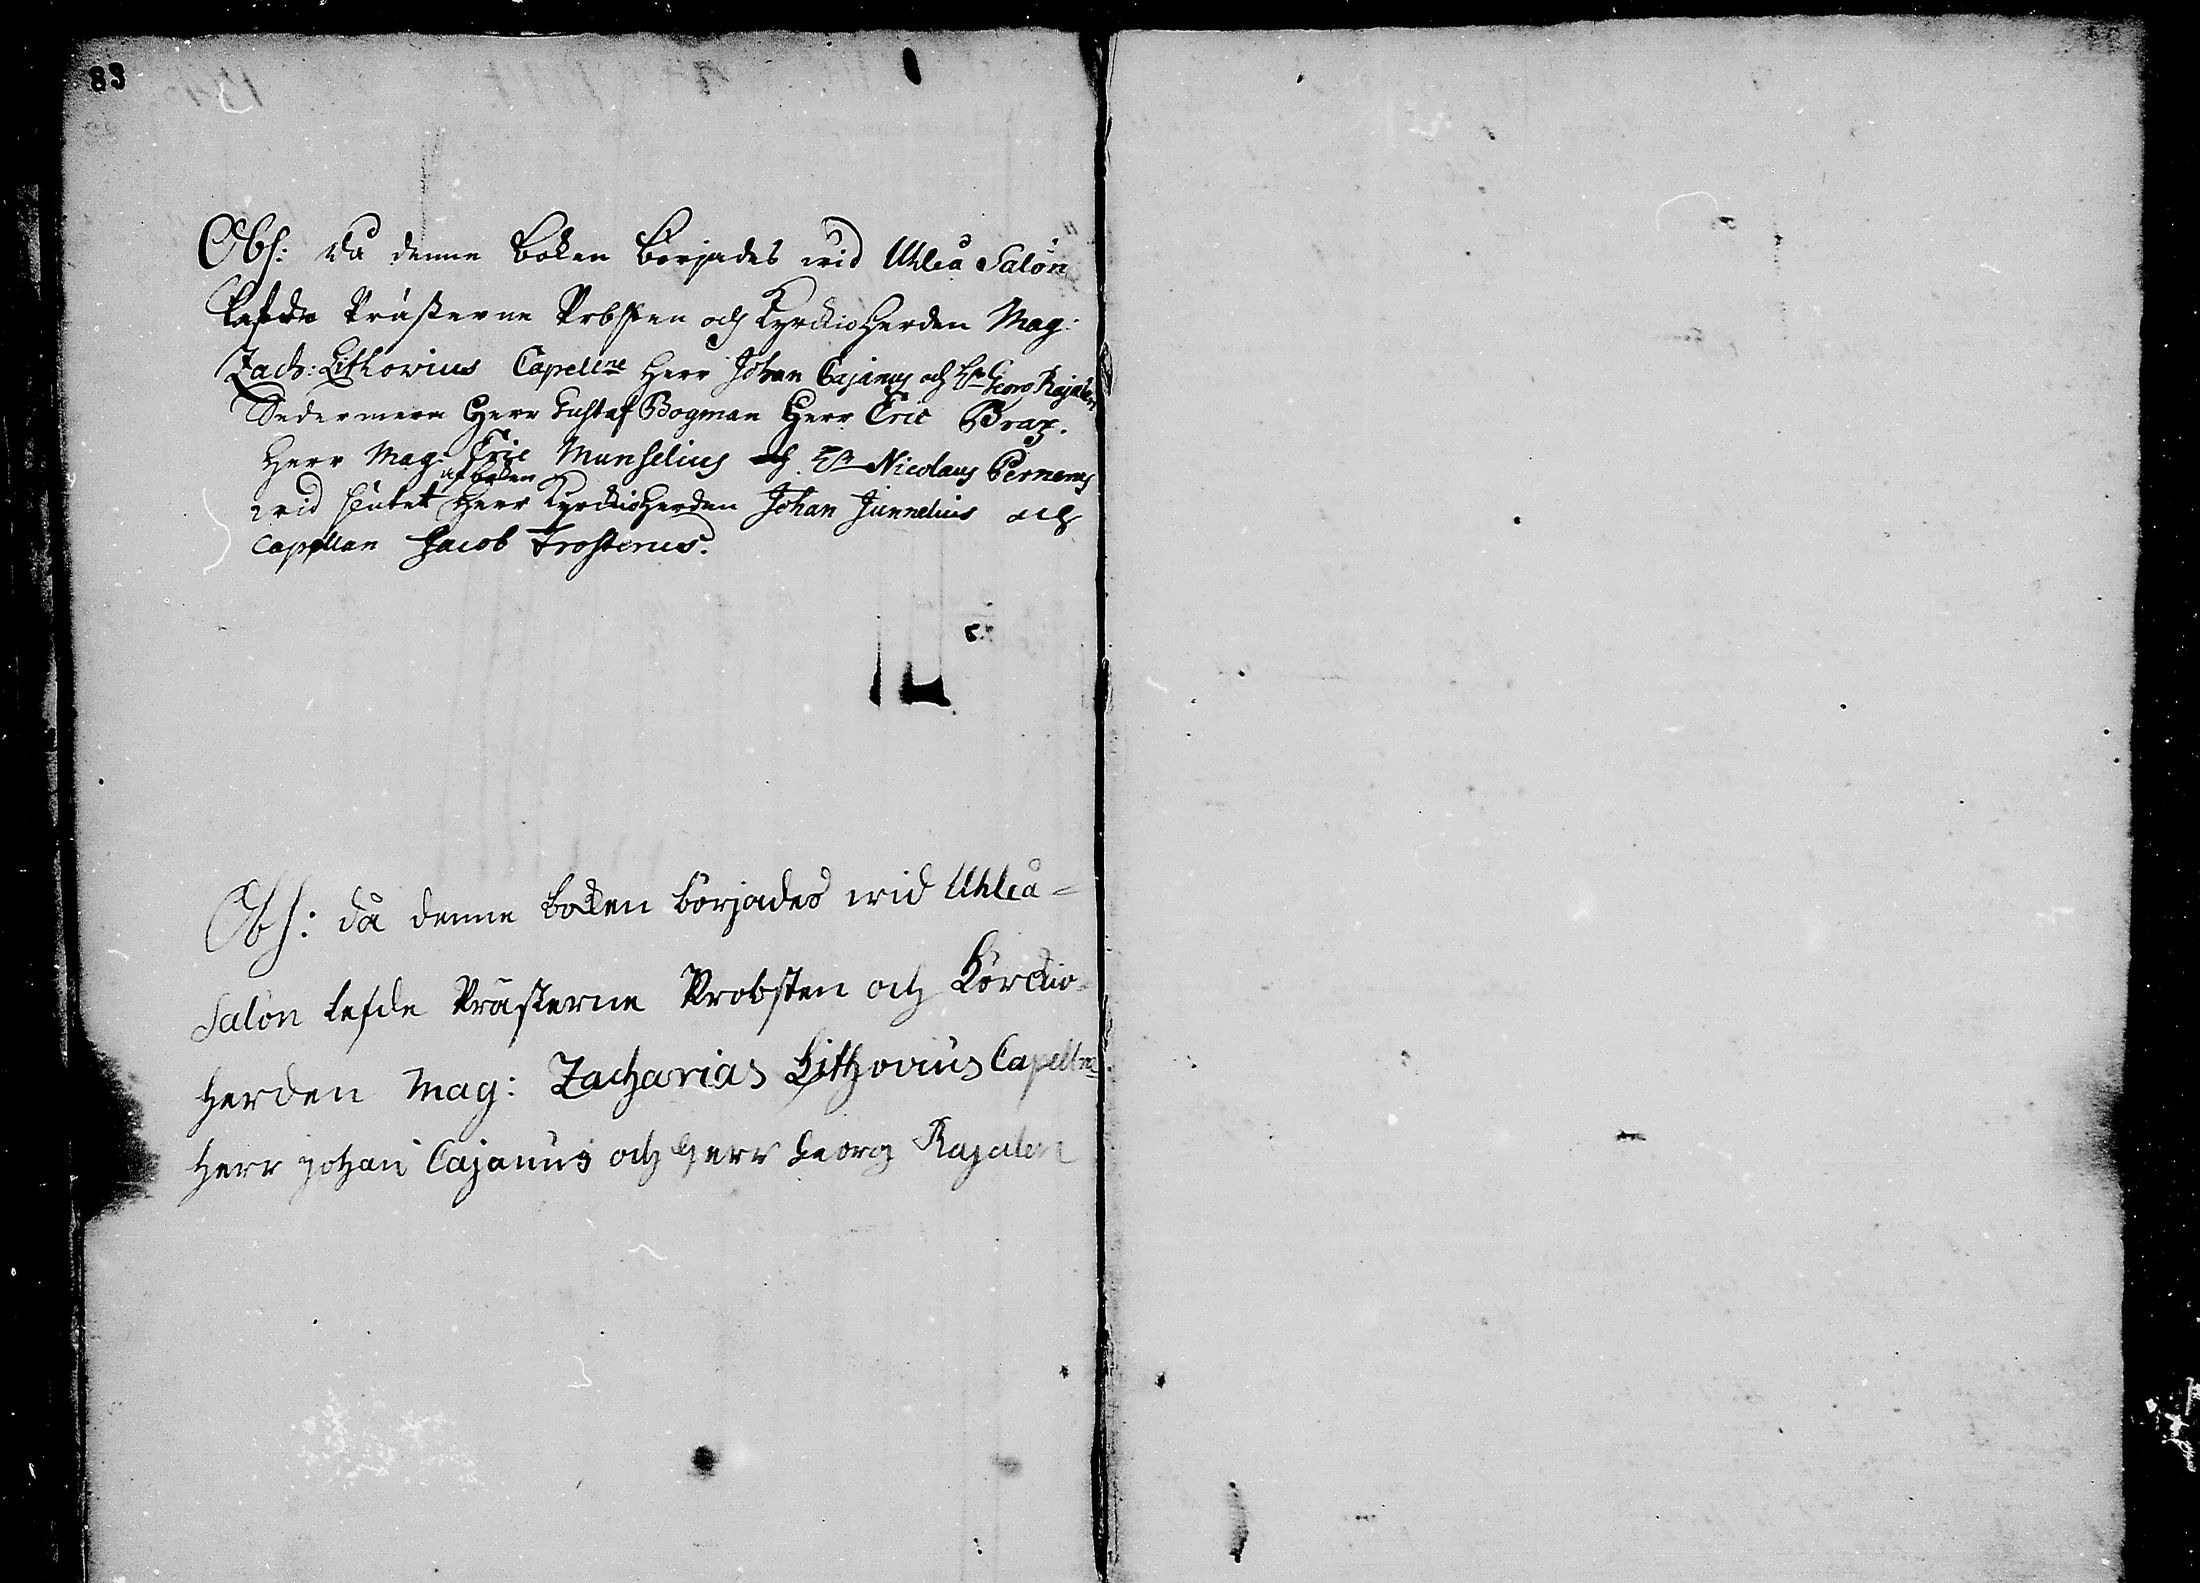 83
Obs: då denne boken börjades wid Uhleå Salön
lefde Prästerne Probsten och Kyrckioherden Mag:
Zach: Lithovius Capellne Herr Johan Cajanus och Hr Georg Rajalen
Sedermera Herr Gustaf Bogman Herr Eric Brax.
Herr Mag: Eric Munselius och Hr Nicolaus Pernenus
af boken
wid slutet Herr Kyrckioherden Johan Junnelius och
Capellan Jacob Frosterus.
Obs: då denne boken börjades wid Uhleå=
Salön lefde Prästerne Probsten och Körckio=
herden Mag: Zacharias Lithovius Capellne
Herr Johan Cajanus och Herr Georg Rajalen